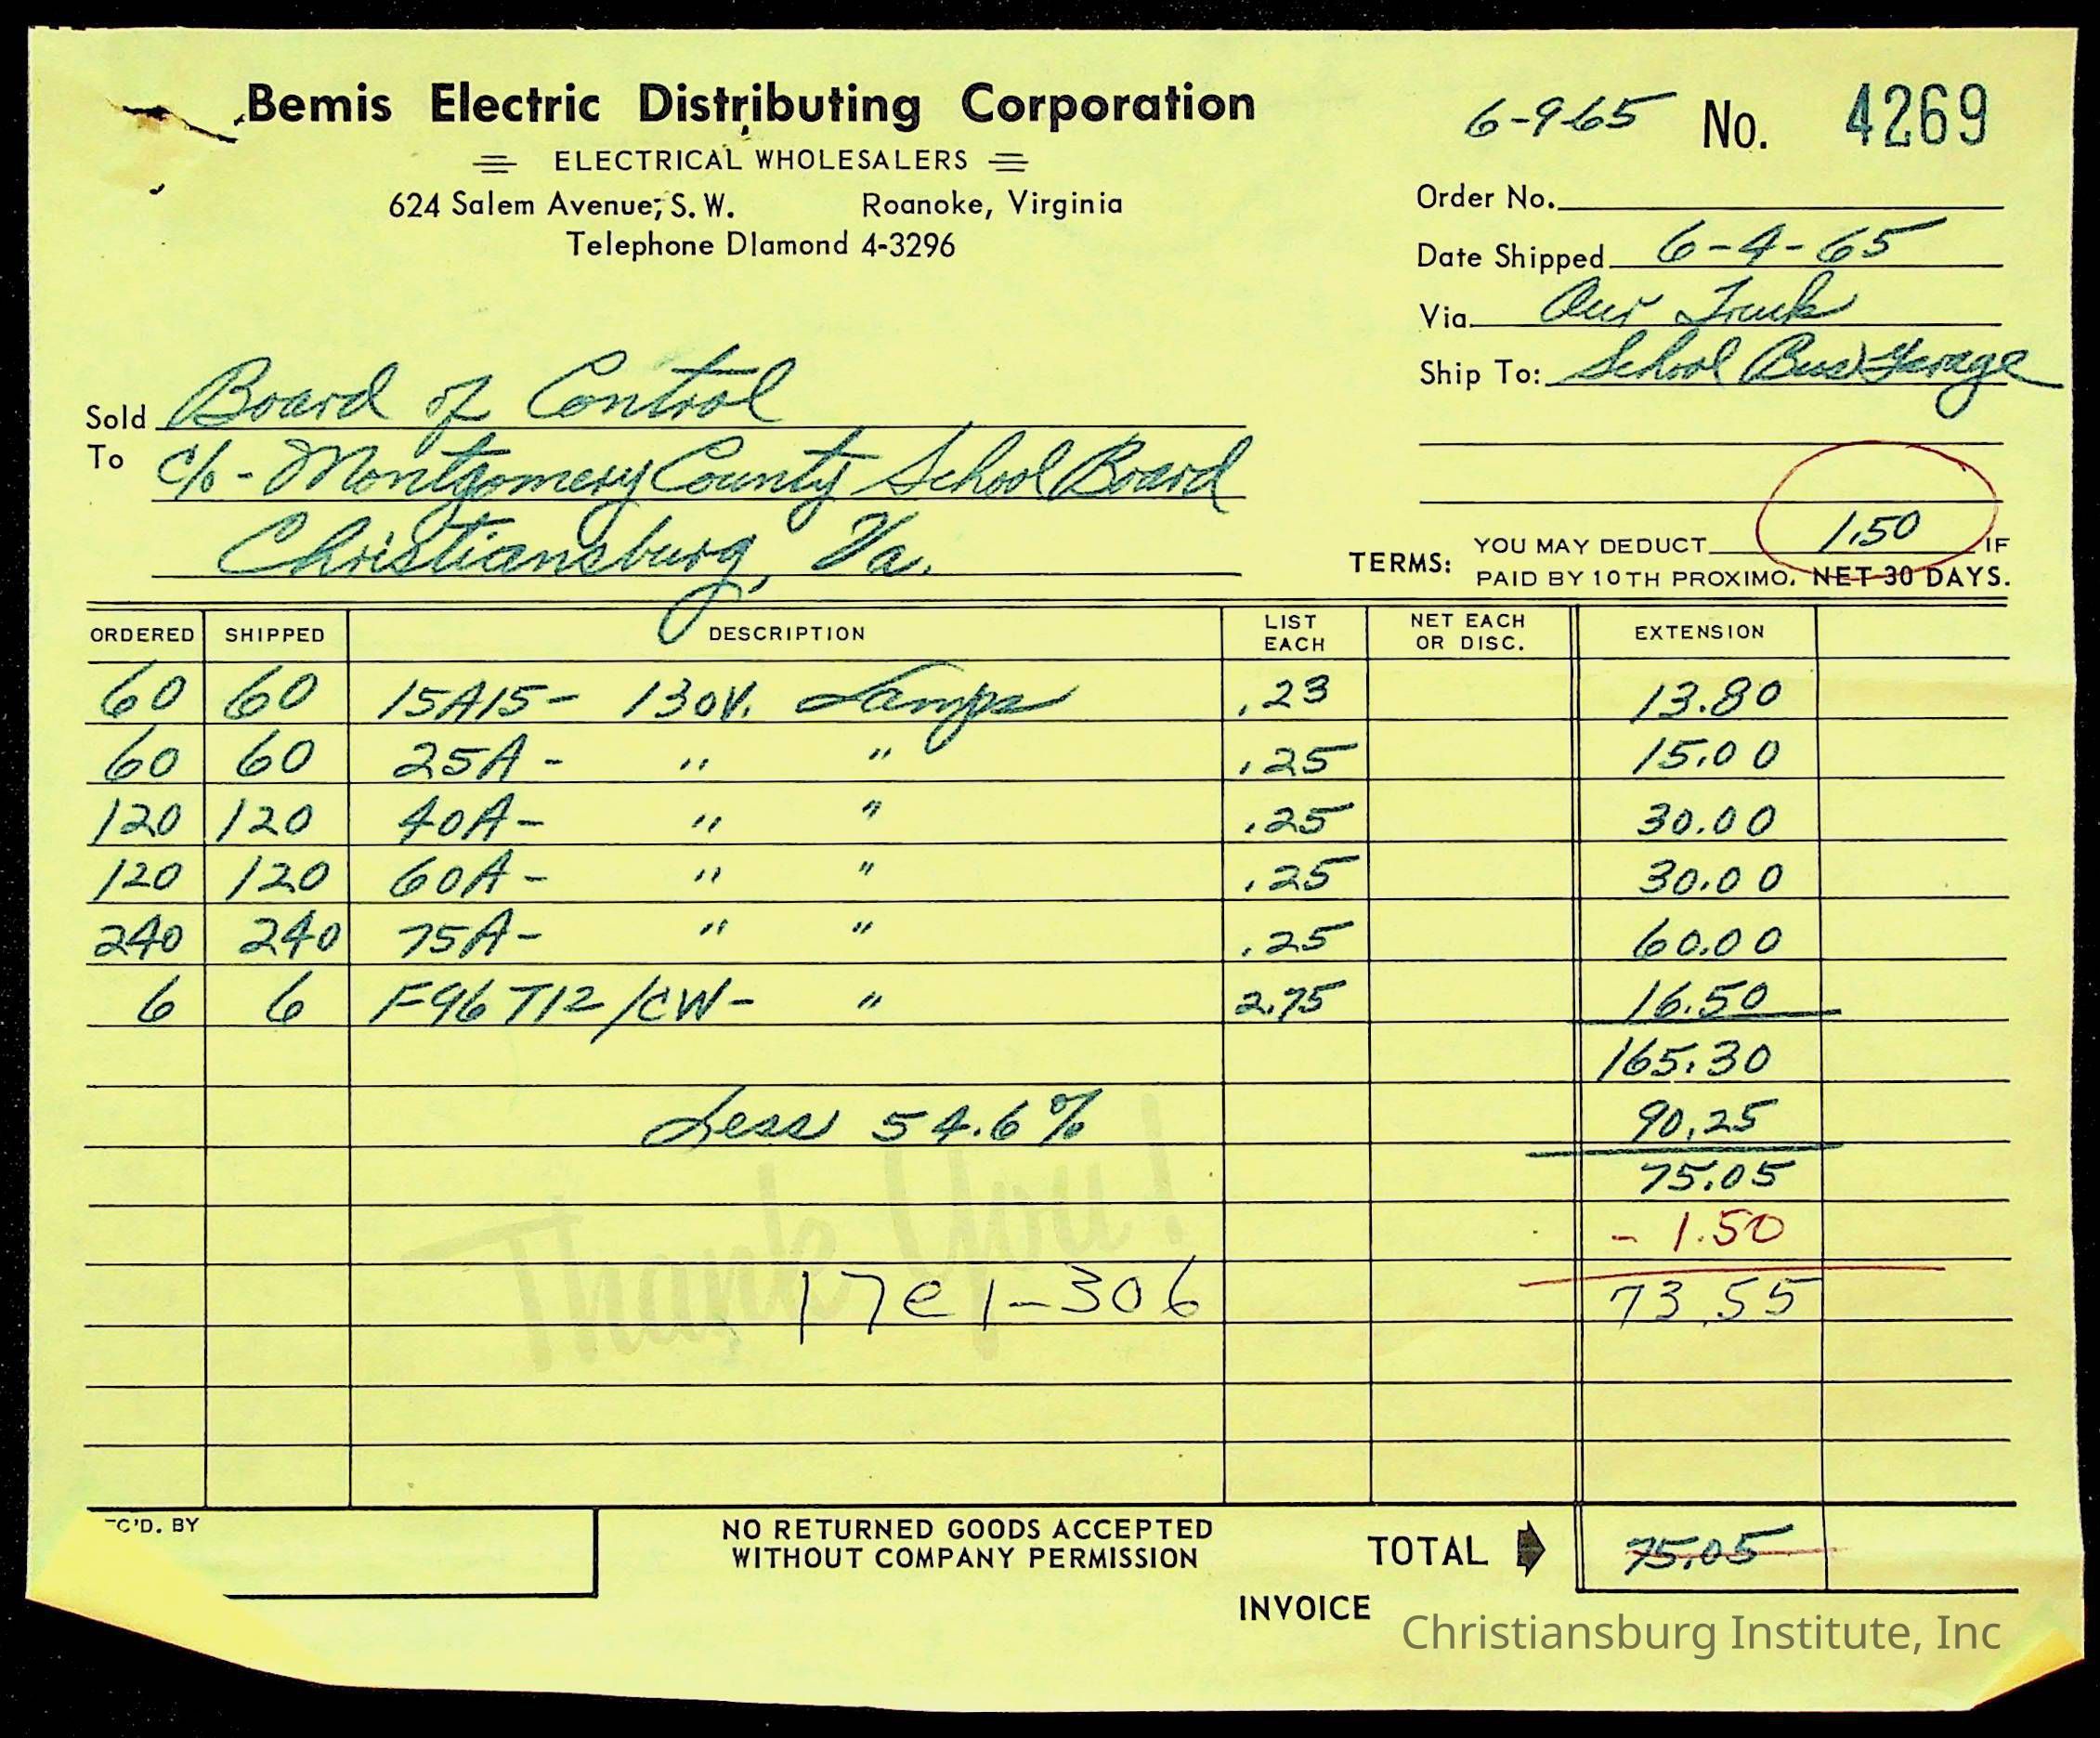 Bemis Electric Distributing Corporation
6-9-65 No. 4269
ELECTRICAL WHOLESALERS
624 Salem Avenue, S. W. Roanoke, Virginia
Telephone DIamond 4-3296
Order No.
Date Shipped 6-4-65
Via Our Truck
Ship To: School Bus Garage
Sold To Board of Control
c/o - Montgomery County School Board
Christiansburg, Va.
TERMS: YOU MAY DEDUCT 1.50 IF
PAID BY 10TH PROXIMO. NET 30 DAYS.
ORDERED SHIPPED DESCRIPTION LIST EACH NET EACH OR DISC. EXTENSION
60 60 15A15- 130V. Lamps .23 13.80
60 60 25A- " " .25 15.00
120 120 40A- " " .25 30.00
120 120 60A- " " .25 30.00
240 240 75A- " " .25 60.00
6 6 F96T12/CW- " 2.75 16.50
165.30
Less 54.6% 90.25
75.05
- 1.50
Thank You!
17e1-306 73.55
C'D. BY
NO RETURNED GOODS ACCEPTED
WITHOUT COMPANY PERMISSION
TOTAL 75.05
INVOICE
Christiansburg Institute, Inc